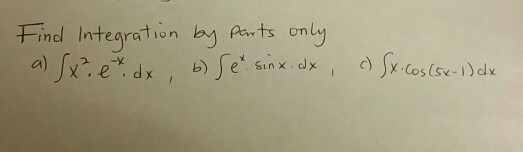 Find Integration by Parts only
a) ∫x².e⁻ˣ.dx , b) ∫eˣ.sinx.dx , c) ∫x.cos(5x-1)dx